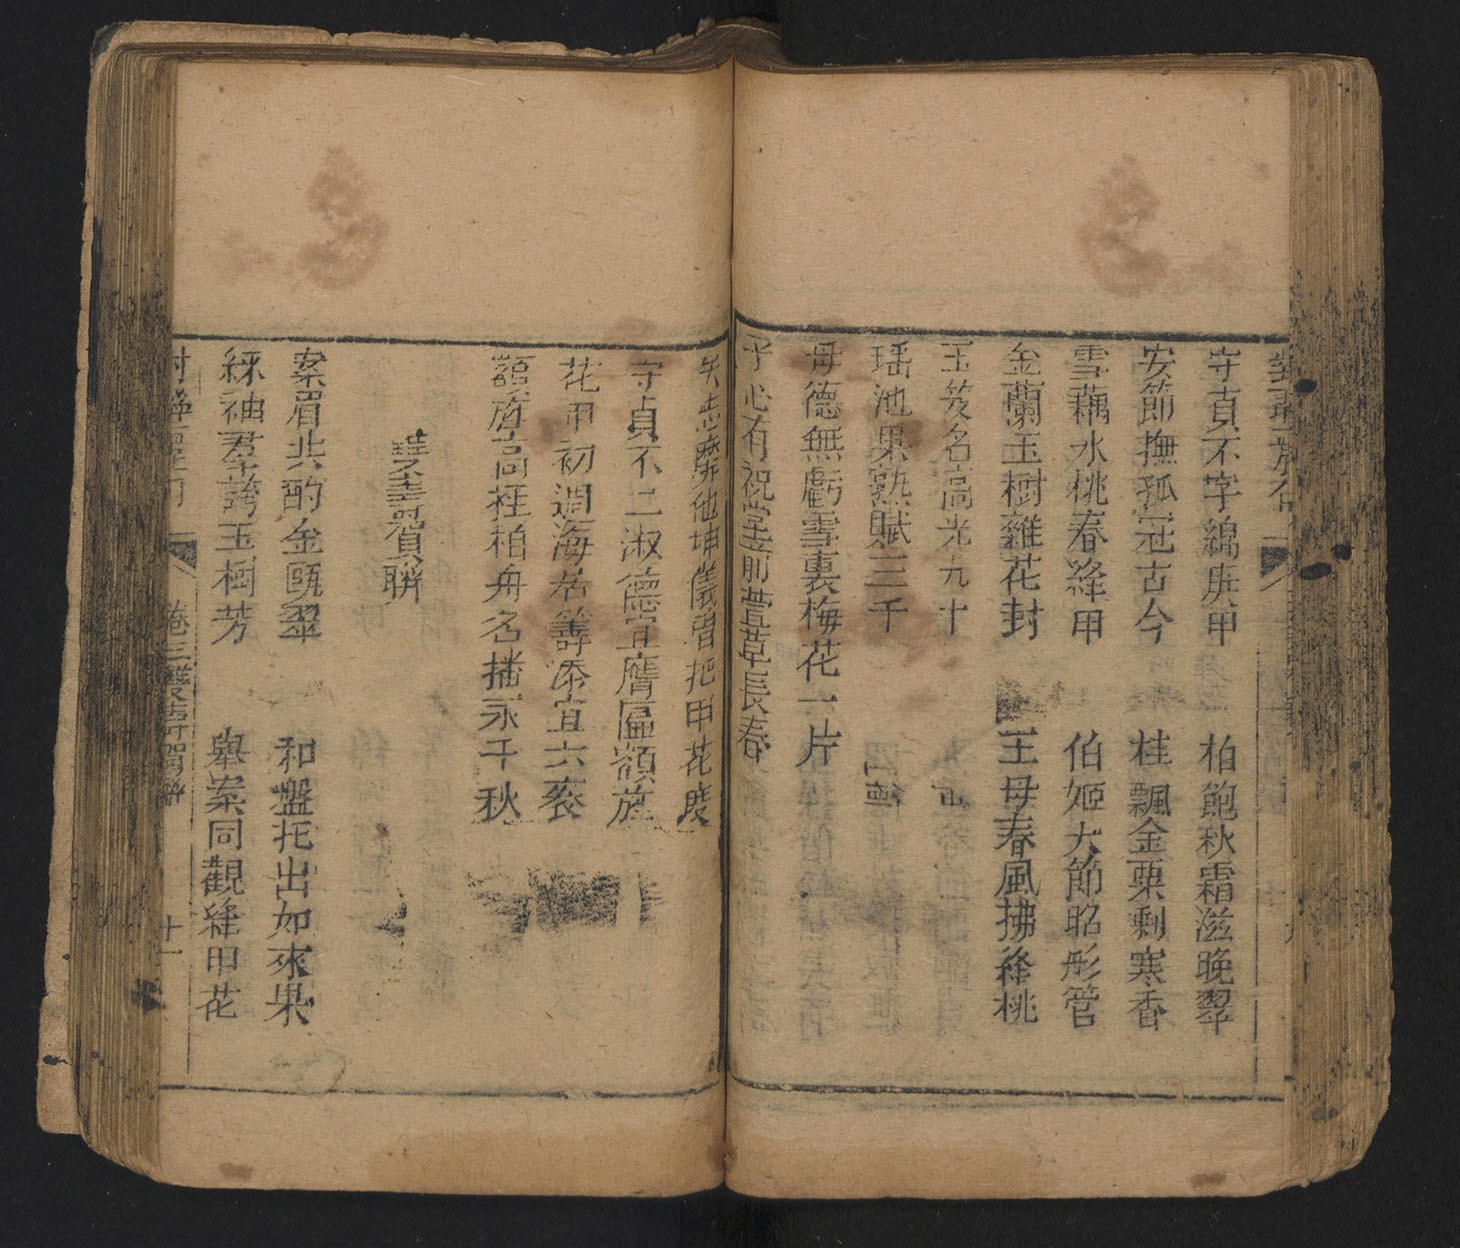 守貞不字綿庚甲　柏飽秋霜滋晚翠
安節撫孤冠古今　桂飄金粟剩寒香
雪藕冰桃春絳甲　伯姬大節昭彤管
金蘭玉樹雜花封　王母春風拂絳桃
玉笈名高光九十
瑤池果熟賦三千
母德無虧雪裏梅花一片
守心有祝堂前萱草長春
矢志靡他坤儀曾把甲花度
守貞不二淑德宜膺匾額旌
花甲初週海若籌添宜六袠
額旌高挂柏舟名播永千秋
雙壽賀聯
案眉共酌金甌翠　和盤托出如來果
綵袖羣誇玉樹芳　舉案同觀絳甲花
卷三雙壽賀聯　十一